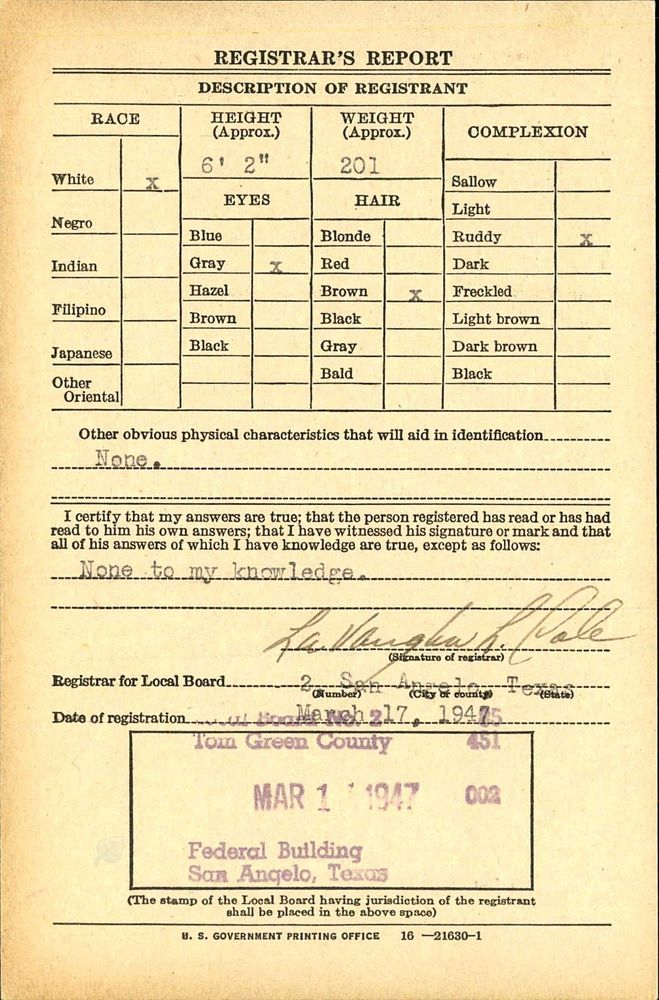 REGISTRAR'S REPORT
DESCRIPTION OF REGISTRANT
RACE
HEIGHT
(Approx.)
WEIGHT
(Approx.)
COMPLEXION
6' 2"
201
White x
Negro
Indian
Filipino
Japanese
Other
Oriental
EYES
Blue
Gray x
Hazel
Brown
Black
HAIR
Blonde
Red
Brown x
Black
Gray
Bald
Sallow
Light
Ruddy x
Dark
Freckled
Light brown
Dark brown
Black
Other obvious physical characteristics that will aid in identification
None.
I certify that my answers are true; that the person registered has read or has had
read to him his own answers; that I have witnessed his signature or mark and that
all of his answers of which I have knowledge are true, except as follows:
None to my knowledge.
La Vaughn L.
(Signature of registrar)
Registrar for Local Board 2 San Angelo Texas
(Number) (City or county) (State)
Date of registration March 17, 1947
Board No. 2
Tom Green County 451
MAR 1 1947 002
Federal Building
San Angelo, Texas
(The stamp of the Local Board having jurisdiction of the registrant
shall be placed in the above space)
U. S. GOVERNMENT PRINTING OFFICE 16—21630-1